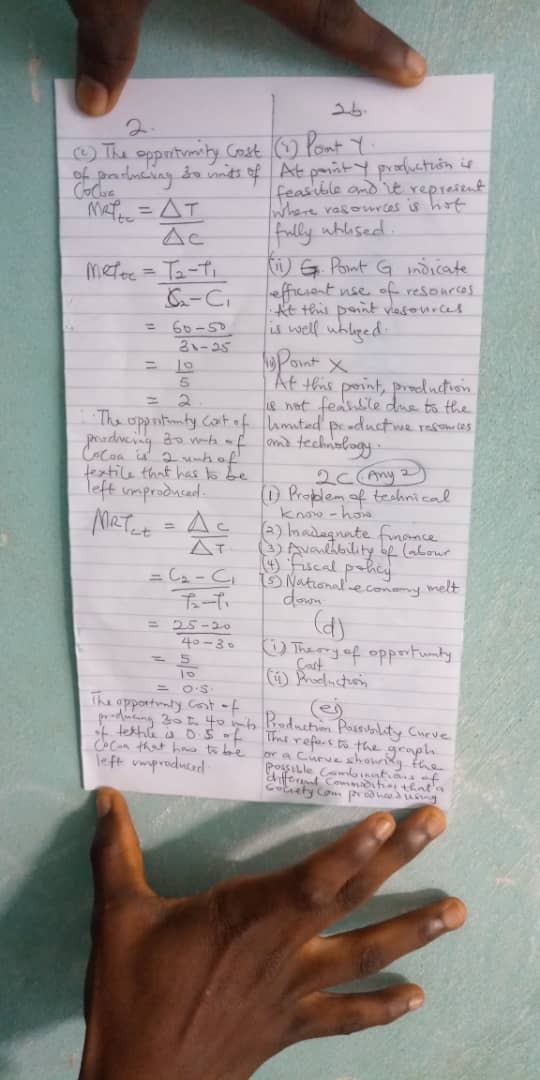 2.
(c) The opportunity Cost
of producing 30 units of
Cocoa
MRTtc = ΔT
ΔC
MRTtc = T2-T1
C2-C1
= 60-50
30-25
= 10
5
= 2
∴ The opportunity Cost of
producing 30 units of
Cocoa is 2 units of
textile that has to be
left unproduced.
MRTct = ΔC
ΔT
= C2-C1
T2-T1
= 25-20
40-30
= 5
10
= 0.5.
The opportunity Cost of
producing 30 to 40 units
of textile is 0.5 of
Cocoa that has to be
left unproduced.
2b.
(i) Point Y.
At point Y production is
feasible and it represent
where resources is not
fully utilised.
(ii) G. Point G indicate
efficient use of resources
. At this point resources
is well utilized.
(iii) Point X
At this point, production
is not feasible due to the
limited productive resources
and technology.
2C (Any 2)
(1) Problem of technical
know-how
(2) Inadequate finance
(3) Availability of labour
(4) fiscal policy
(5) National economy melt
down
(d)
(i) Theory of opportunity
Cost
(ii) Production
(e)
Production Possibility Curve
This refers to the graph
or a Curve showing the
possible Combinations of
different Commodities that a
Society Can produced using